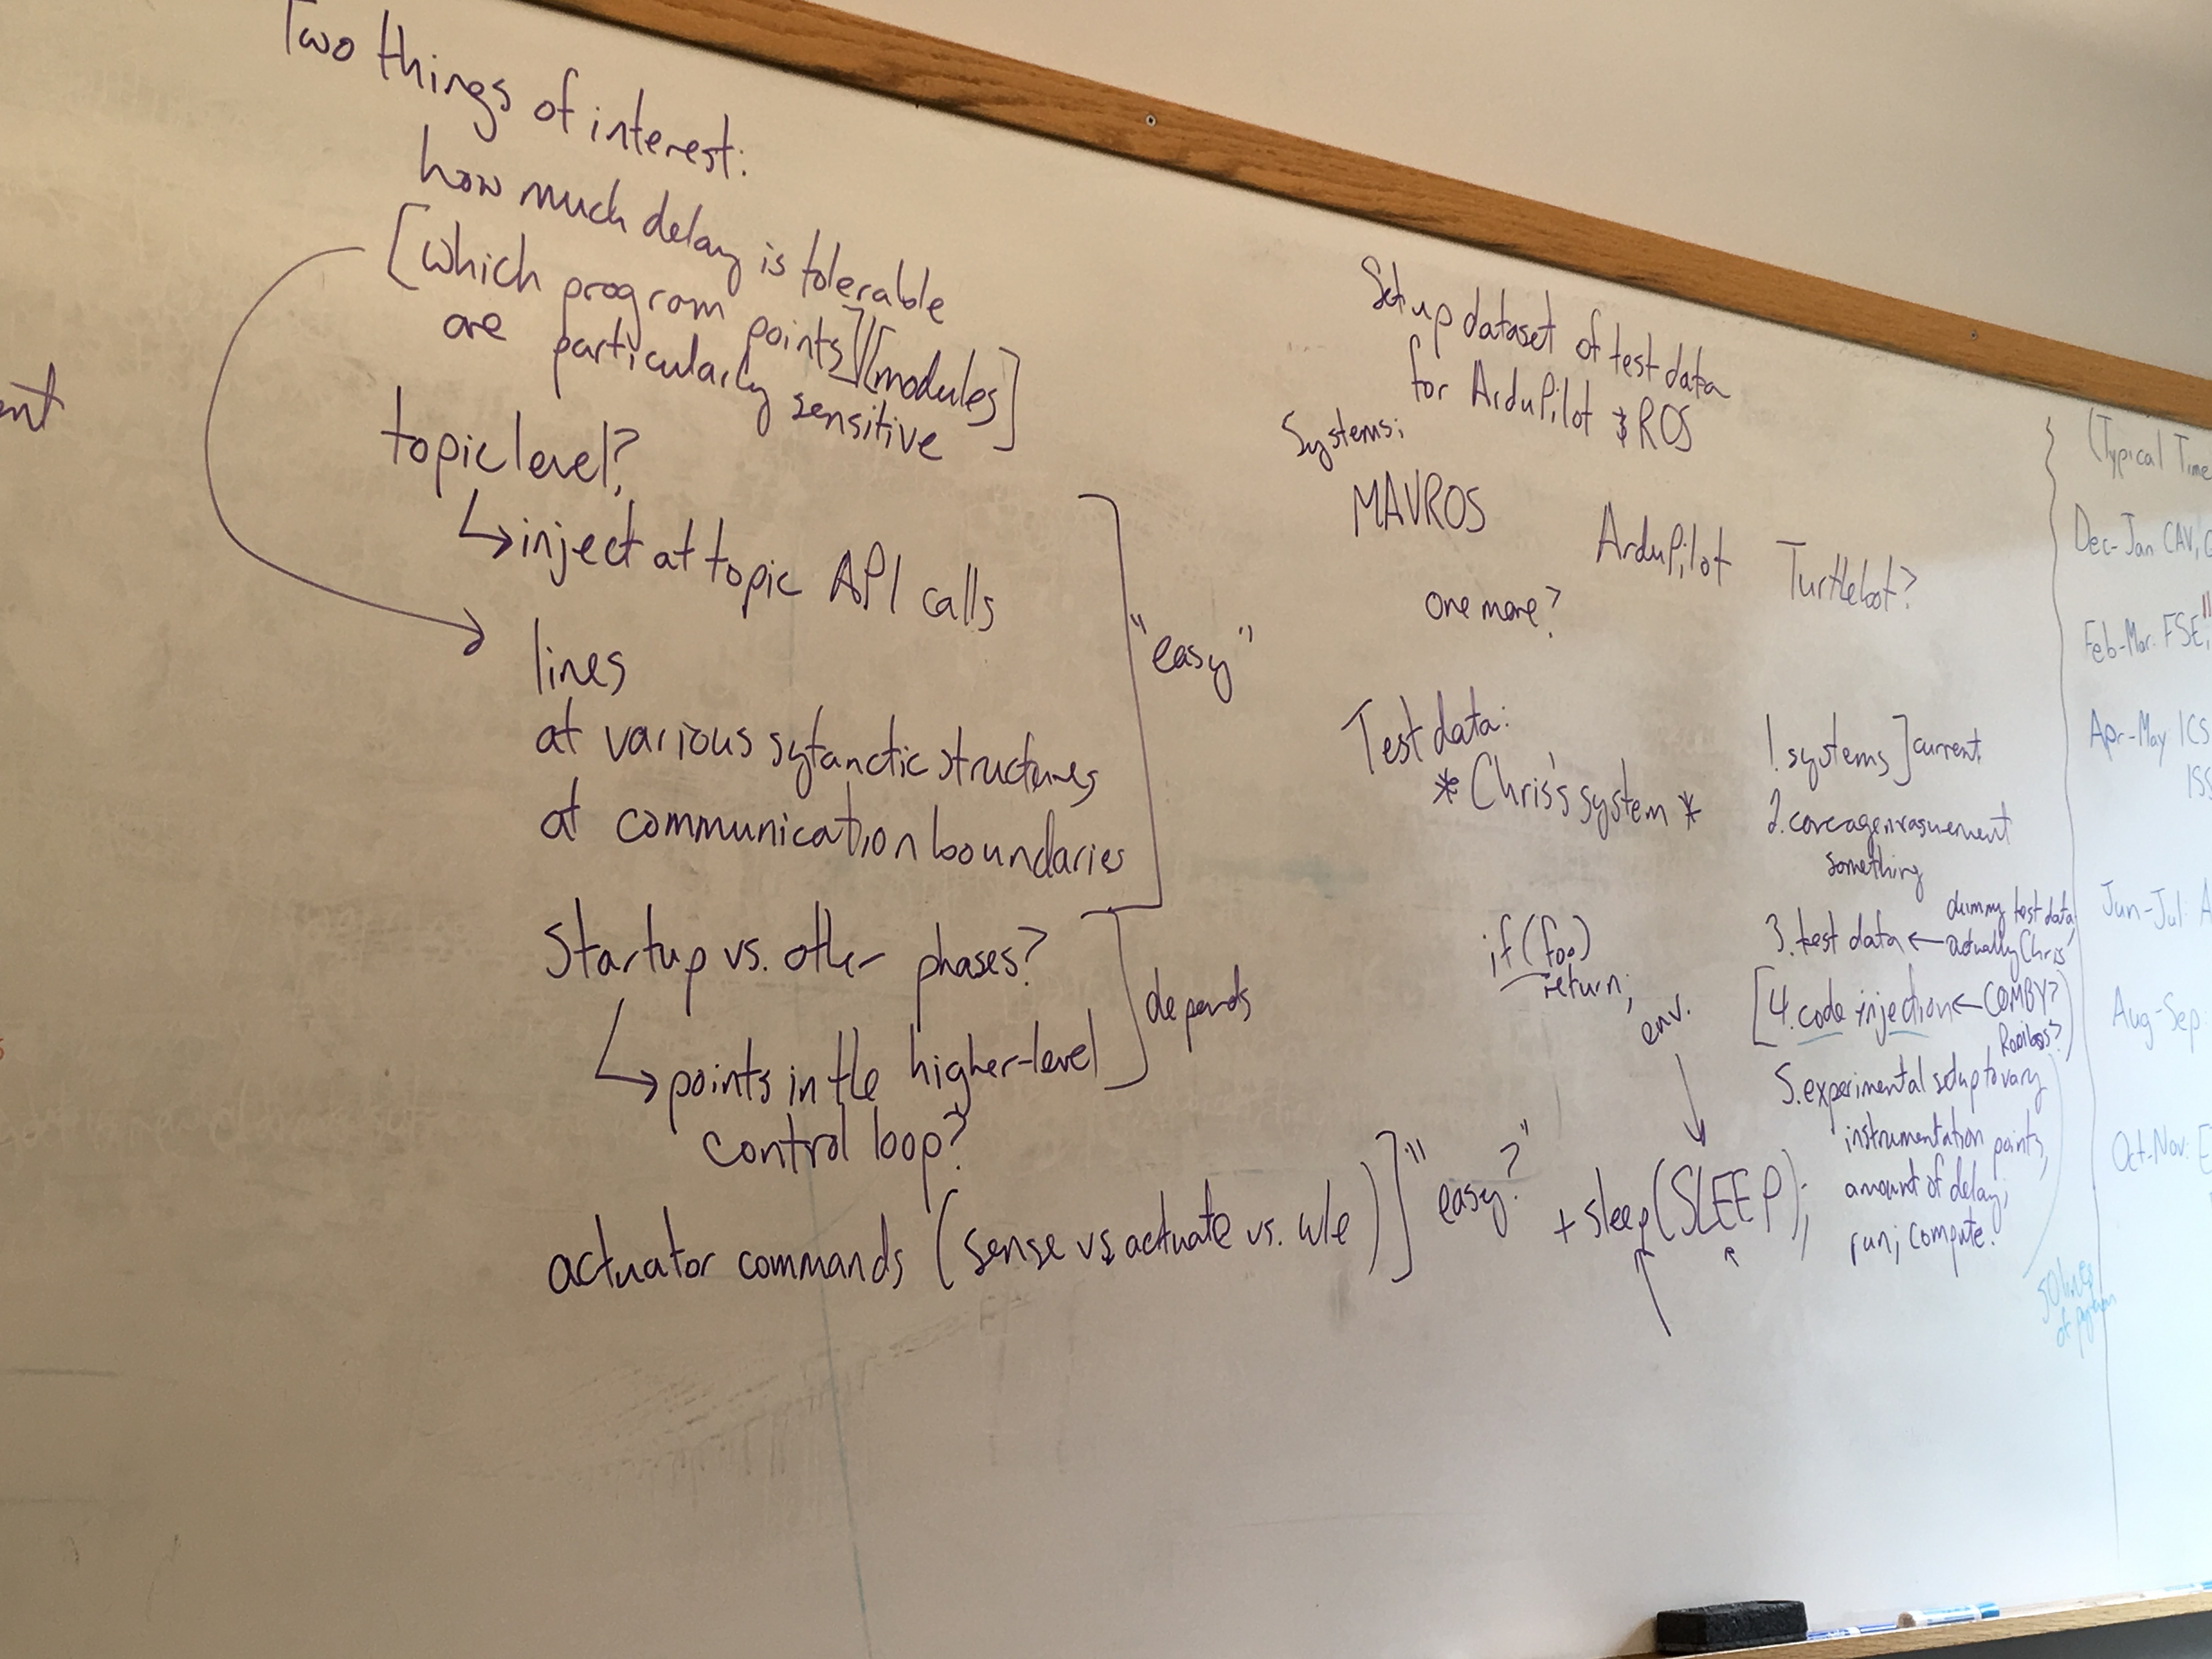 Two things of interest:
how much delay is tolerable
[which program points][modules]
are particularly sensitive
topic level?
↳ inject at topic API calls
lines
at various sytanctic structures
at communication boundaries
"easy"
Startup vs. other phases?
↳ points in the higher-level
control loop?
depends
actuator commands (sense vs actuate vs. w/e)] "easy?"
ent
Set up dataset of test data
for ArduPilot & ROS
Systems:
MAVROS
ArduPilot
Turtlebot?
one more?
Test data:
* Chris's system *
if (foo)
return;
env.
+ sleep(SLEEP);
1. systems] current
2. coverage measurement
something
3. test data ←
dummy test data,
actually Chris'
[4. code injection ← COMBY?
Rooibos?
5. experimental setup to vary
instrumentation points,
amount of delay;
run; compute.
50 lines
of program
(Typical Time
Dec-Jan CAV,
Feb-Mar. FSE,
Apr-May ICS
ISS
Jun-Jul: A
Aug-Sep:
Oct-Nov: E